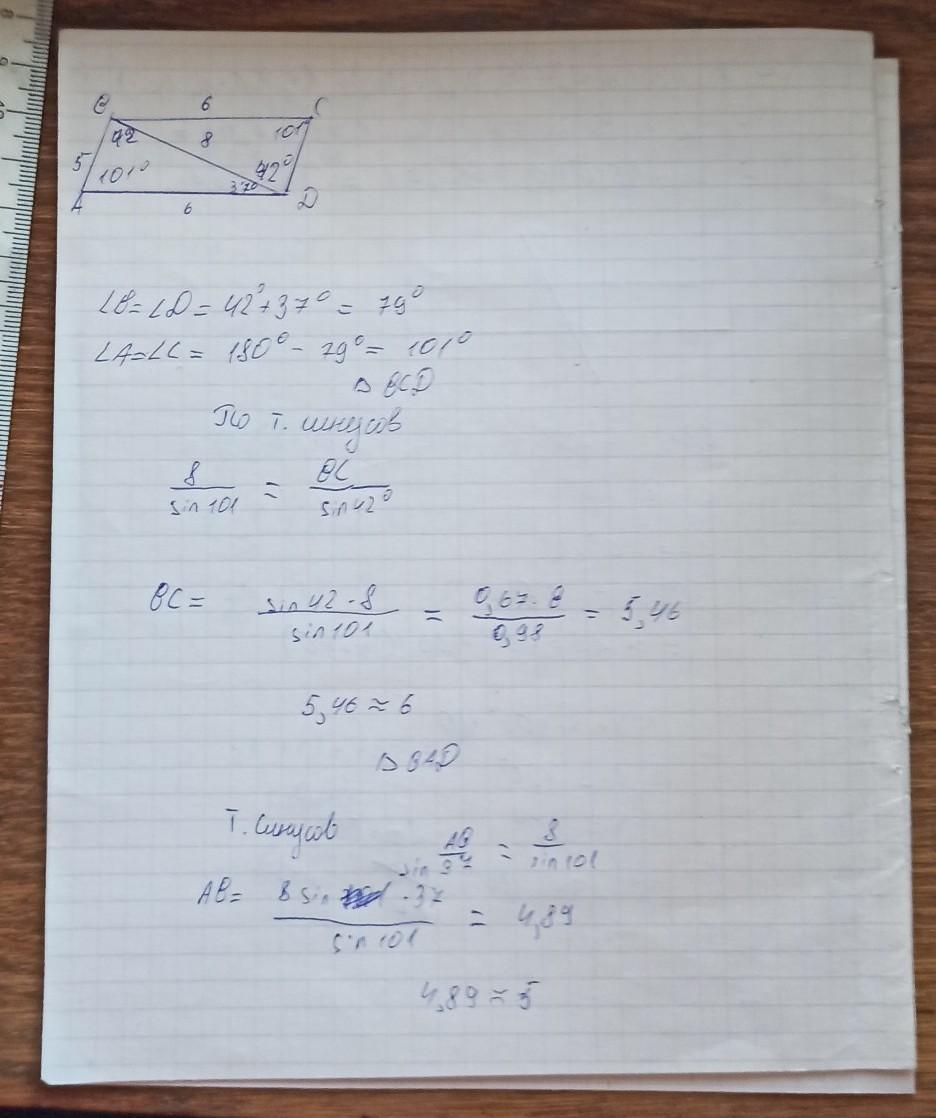 B 6 C
42 8 101
5 101° 42°
37°
A 6 D
∠B=∠D= 42°+37° = 79°
∠A=∠C= 180° - 79° = 101°
△ BCD
По т. синусов
8/sin 101 = BC/sin 42°
BC= sin 42 · 8/sin 101 = 0,67 · 8/0,98 = 5,46
5,46 ≈ 6
△ BAD
Т. Синусов AB/sin 37 = 8/sin 101
AB= 8 sin · 37/sin 101 = 4,89
4,89 ≈ 5